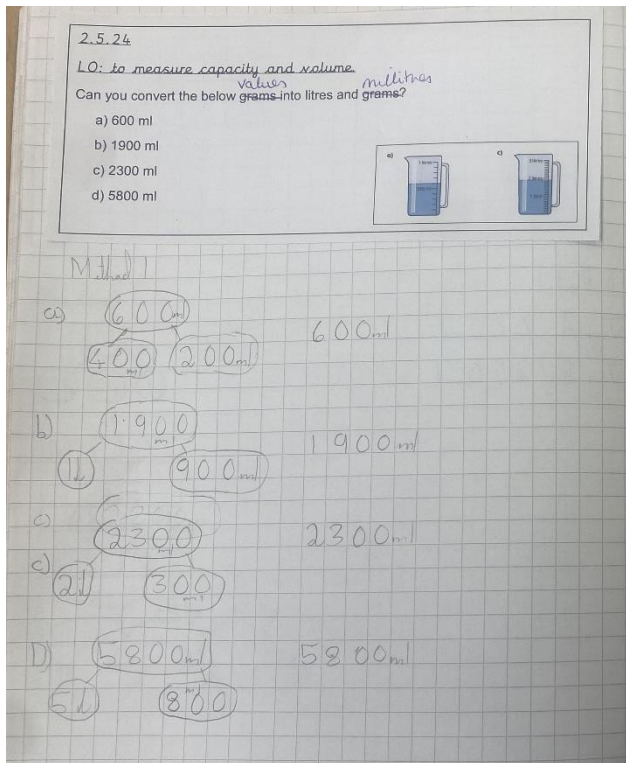 2.5.24
LO: to measure capacity and volume.
values millitres
Can you convert the below grams into litres and grams?
a) 600 ml
b) 1900 ml
c) 2300 ml
d) 5800 ml
a) c)
Method 1
a) 600ml
400ml 200ml 600ml
b) 1900ml
1l 900ml 1900ml
c)
2300ml 2300ml
c) 2l 300ml
D) 5800ml 5800ml
5l 800ml